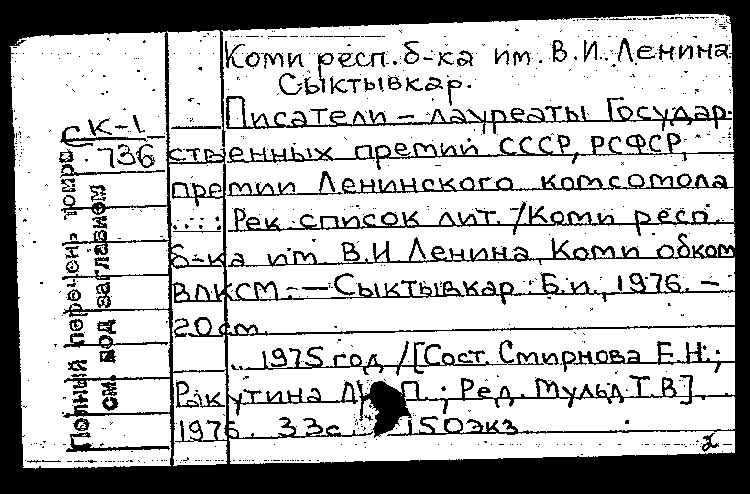 Коми респ. б-ка им. В.И. Ленина
Сыктывкар.
Писатели – лауреаты Государ-
ственных премий СССР, РСФСР,
премии Ленинского комсомола
....: Рек список лит. /Коми респ.
б-ка им. В.И Ленина, Коми обком
ВЛКСМ. — Сыктывкар: Б.и., 1976. –
20 см.
.. 1975 год /[Сост. Смирнова Е.Н.;
Ракутина П.; Ред. Мульд Т.В].
1976. 33с. 150экз.
СК-1
736
Полный перечень томов
см. под заглавием
2